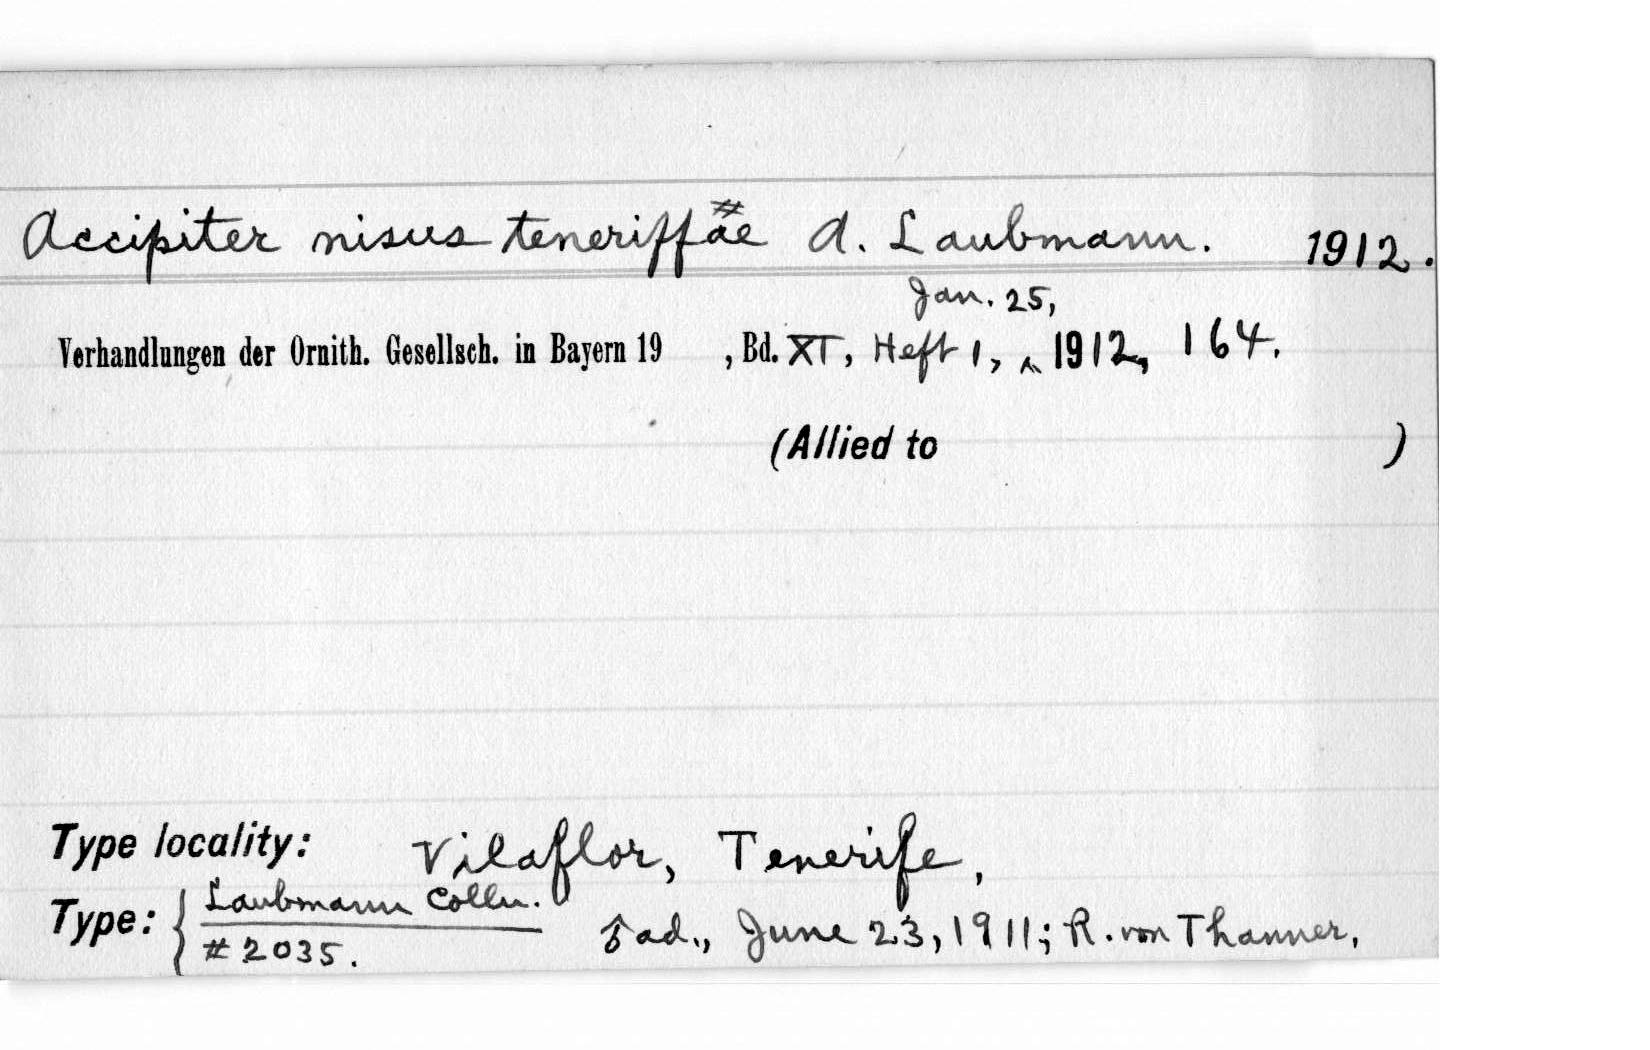 #
Accipiter nisus teneriffae A. Laubmann. 1912.
Jan. 25,
Verhandlungen der Ornith. Gesellsch. in Bayern 19 , Bd. XI, Heft 1, ‸ 1912, 164.
(Allied to )
Type locality: Vilaflor, Tenerife,
Type: { Laubmann Colln.
#2035. ♂ ad., June 23, 1911; R. von Thanner.